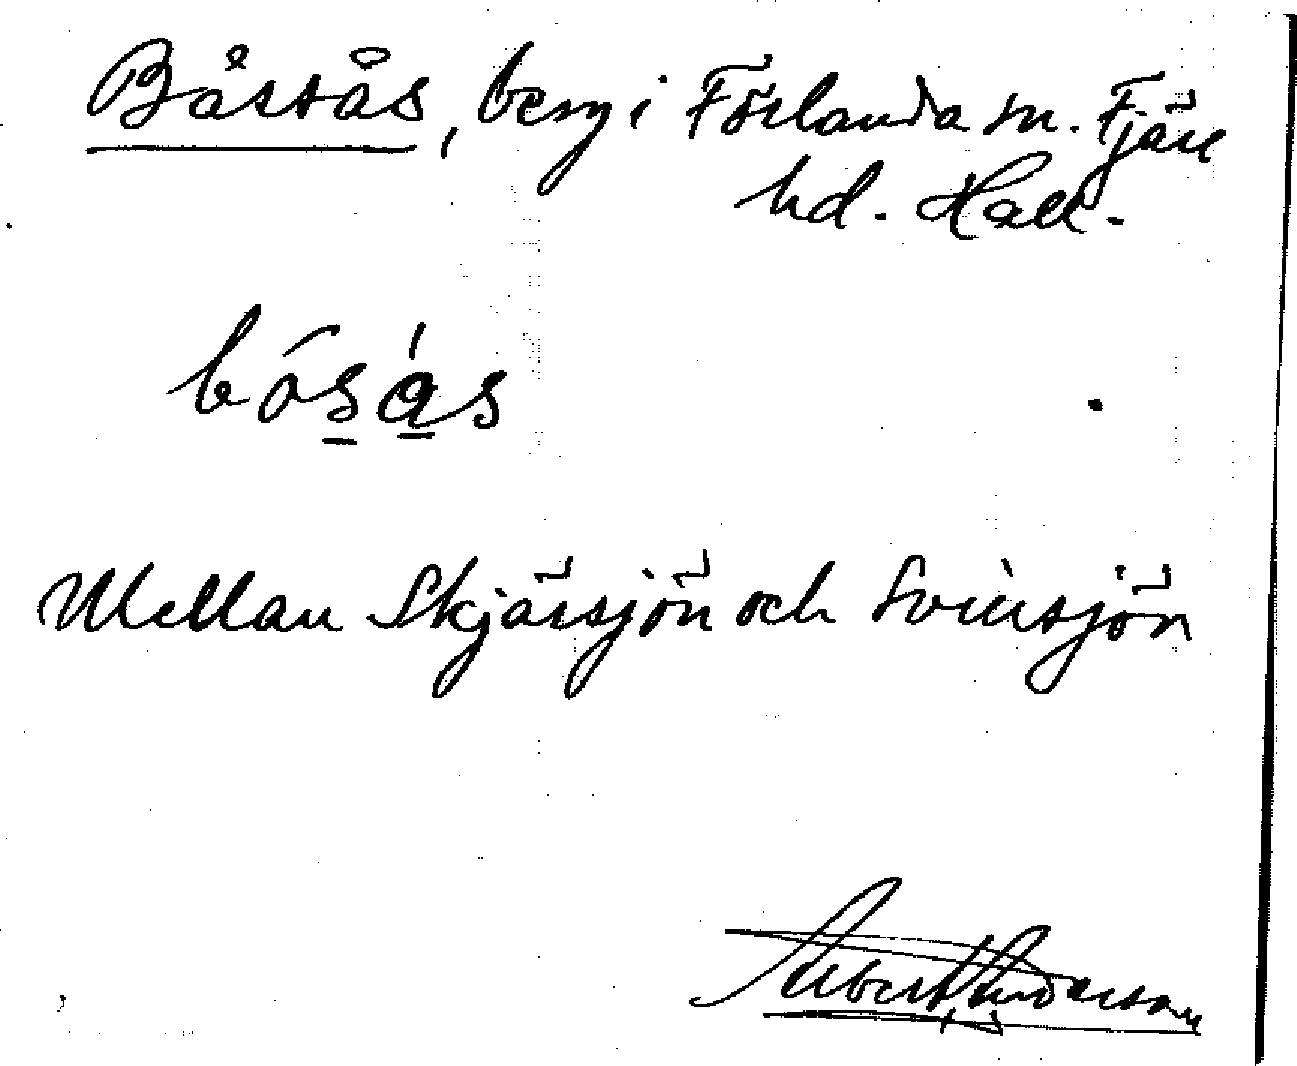 Båtsås, berg i Förlanda sn. Fjäre
hd. Hall.
bósás
Mellan Skjärsjön och Svinsjön
Albert Andersson